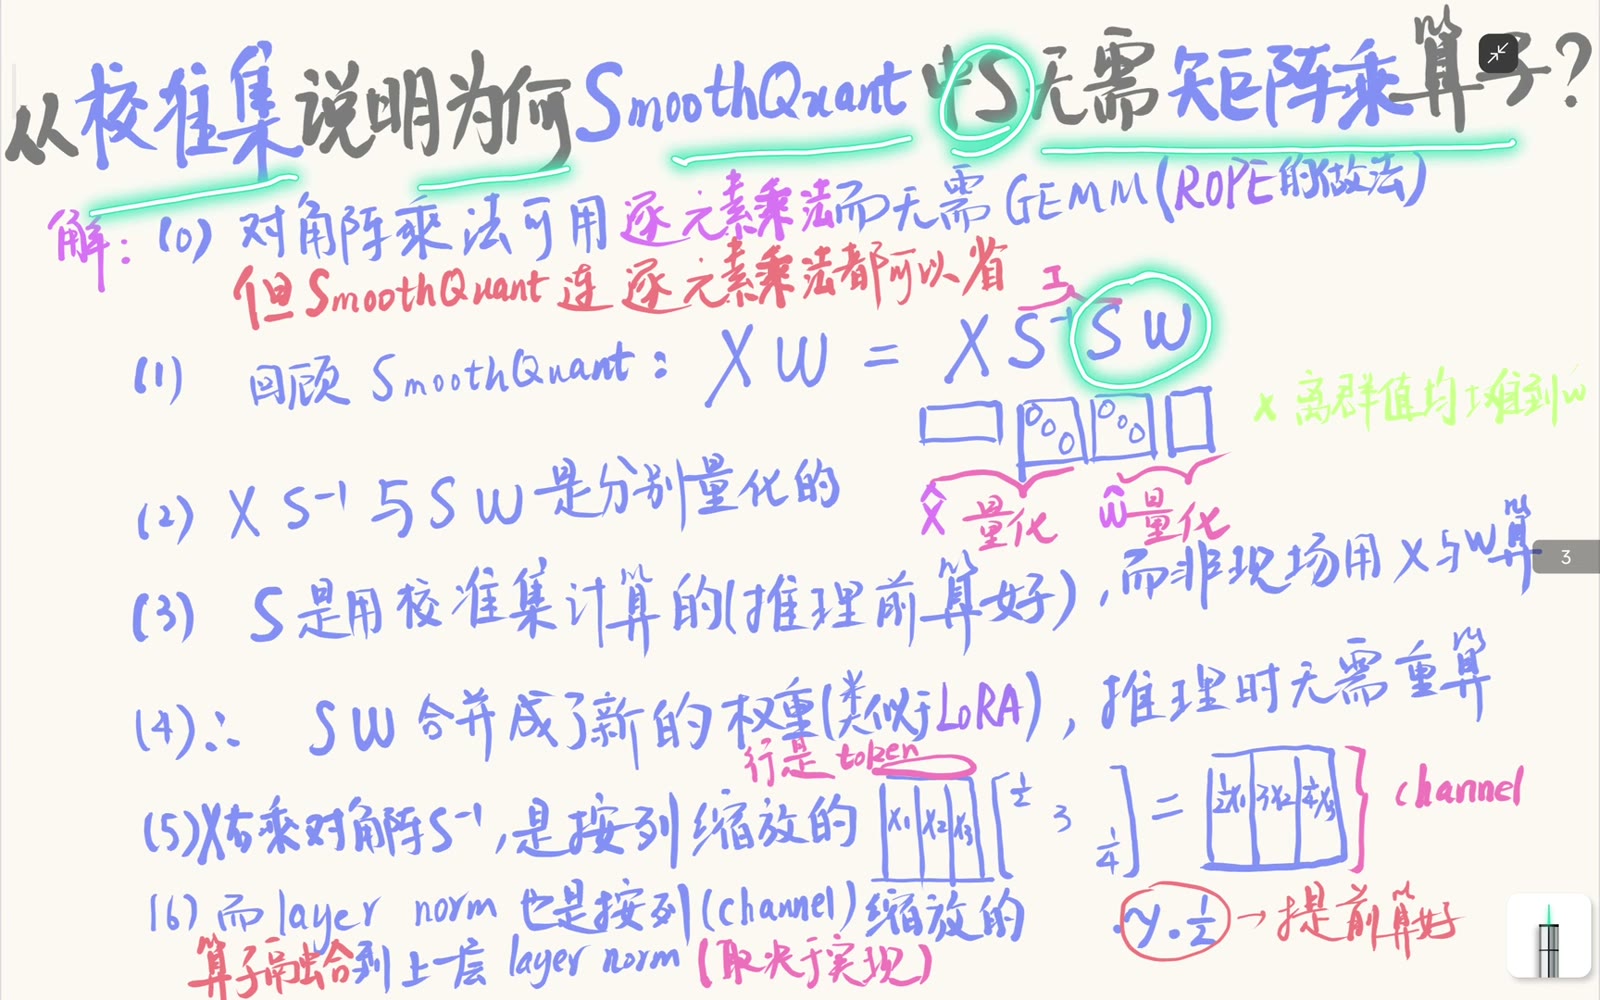 从校准集说明为何SmoothQuant中S无需矩阵乘算子?
解: (0) 对角阵乘法可用逐元素乘法而无需GEMM(ROPE的做法)
但SmoothQuant连逐元素乘法都可以省
I
(1) 回顾SmoothQuant: XW = XS⁻¹SW
X离群值均摊到W
X̂ 量化 Ŵ 量化
(2) XS⁻¹与SW是分别量化的
(3) S是用校准集计算的(推理前算好),而非现场用X与W算
3
(4)∴ SW合并成了新的权重(类似于LoRA),推理时无需重算
行是token
(5)X右乘对角阵S⁻¹,是按列缩放的 X₁ X₂ X₃ [½ 3 ¼] = ½X₁ 3X₂ ¼X₃ channel
(6) 而layer norm也是按列(channel)缩放的 γ·½→提前算好
算子融合到上一层layer norm(取决于实现)